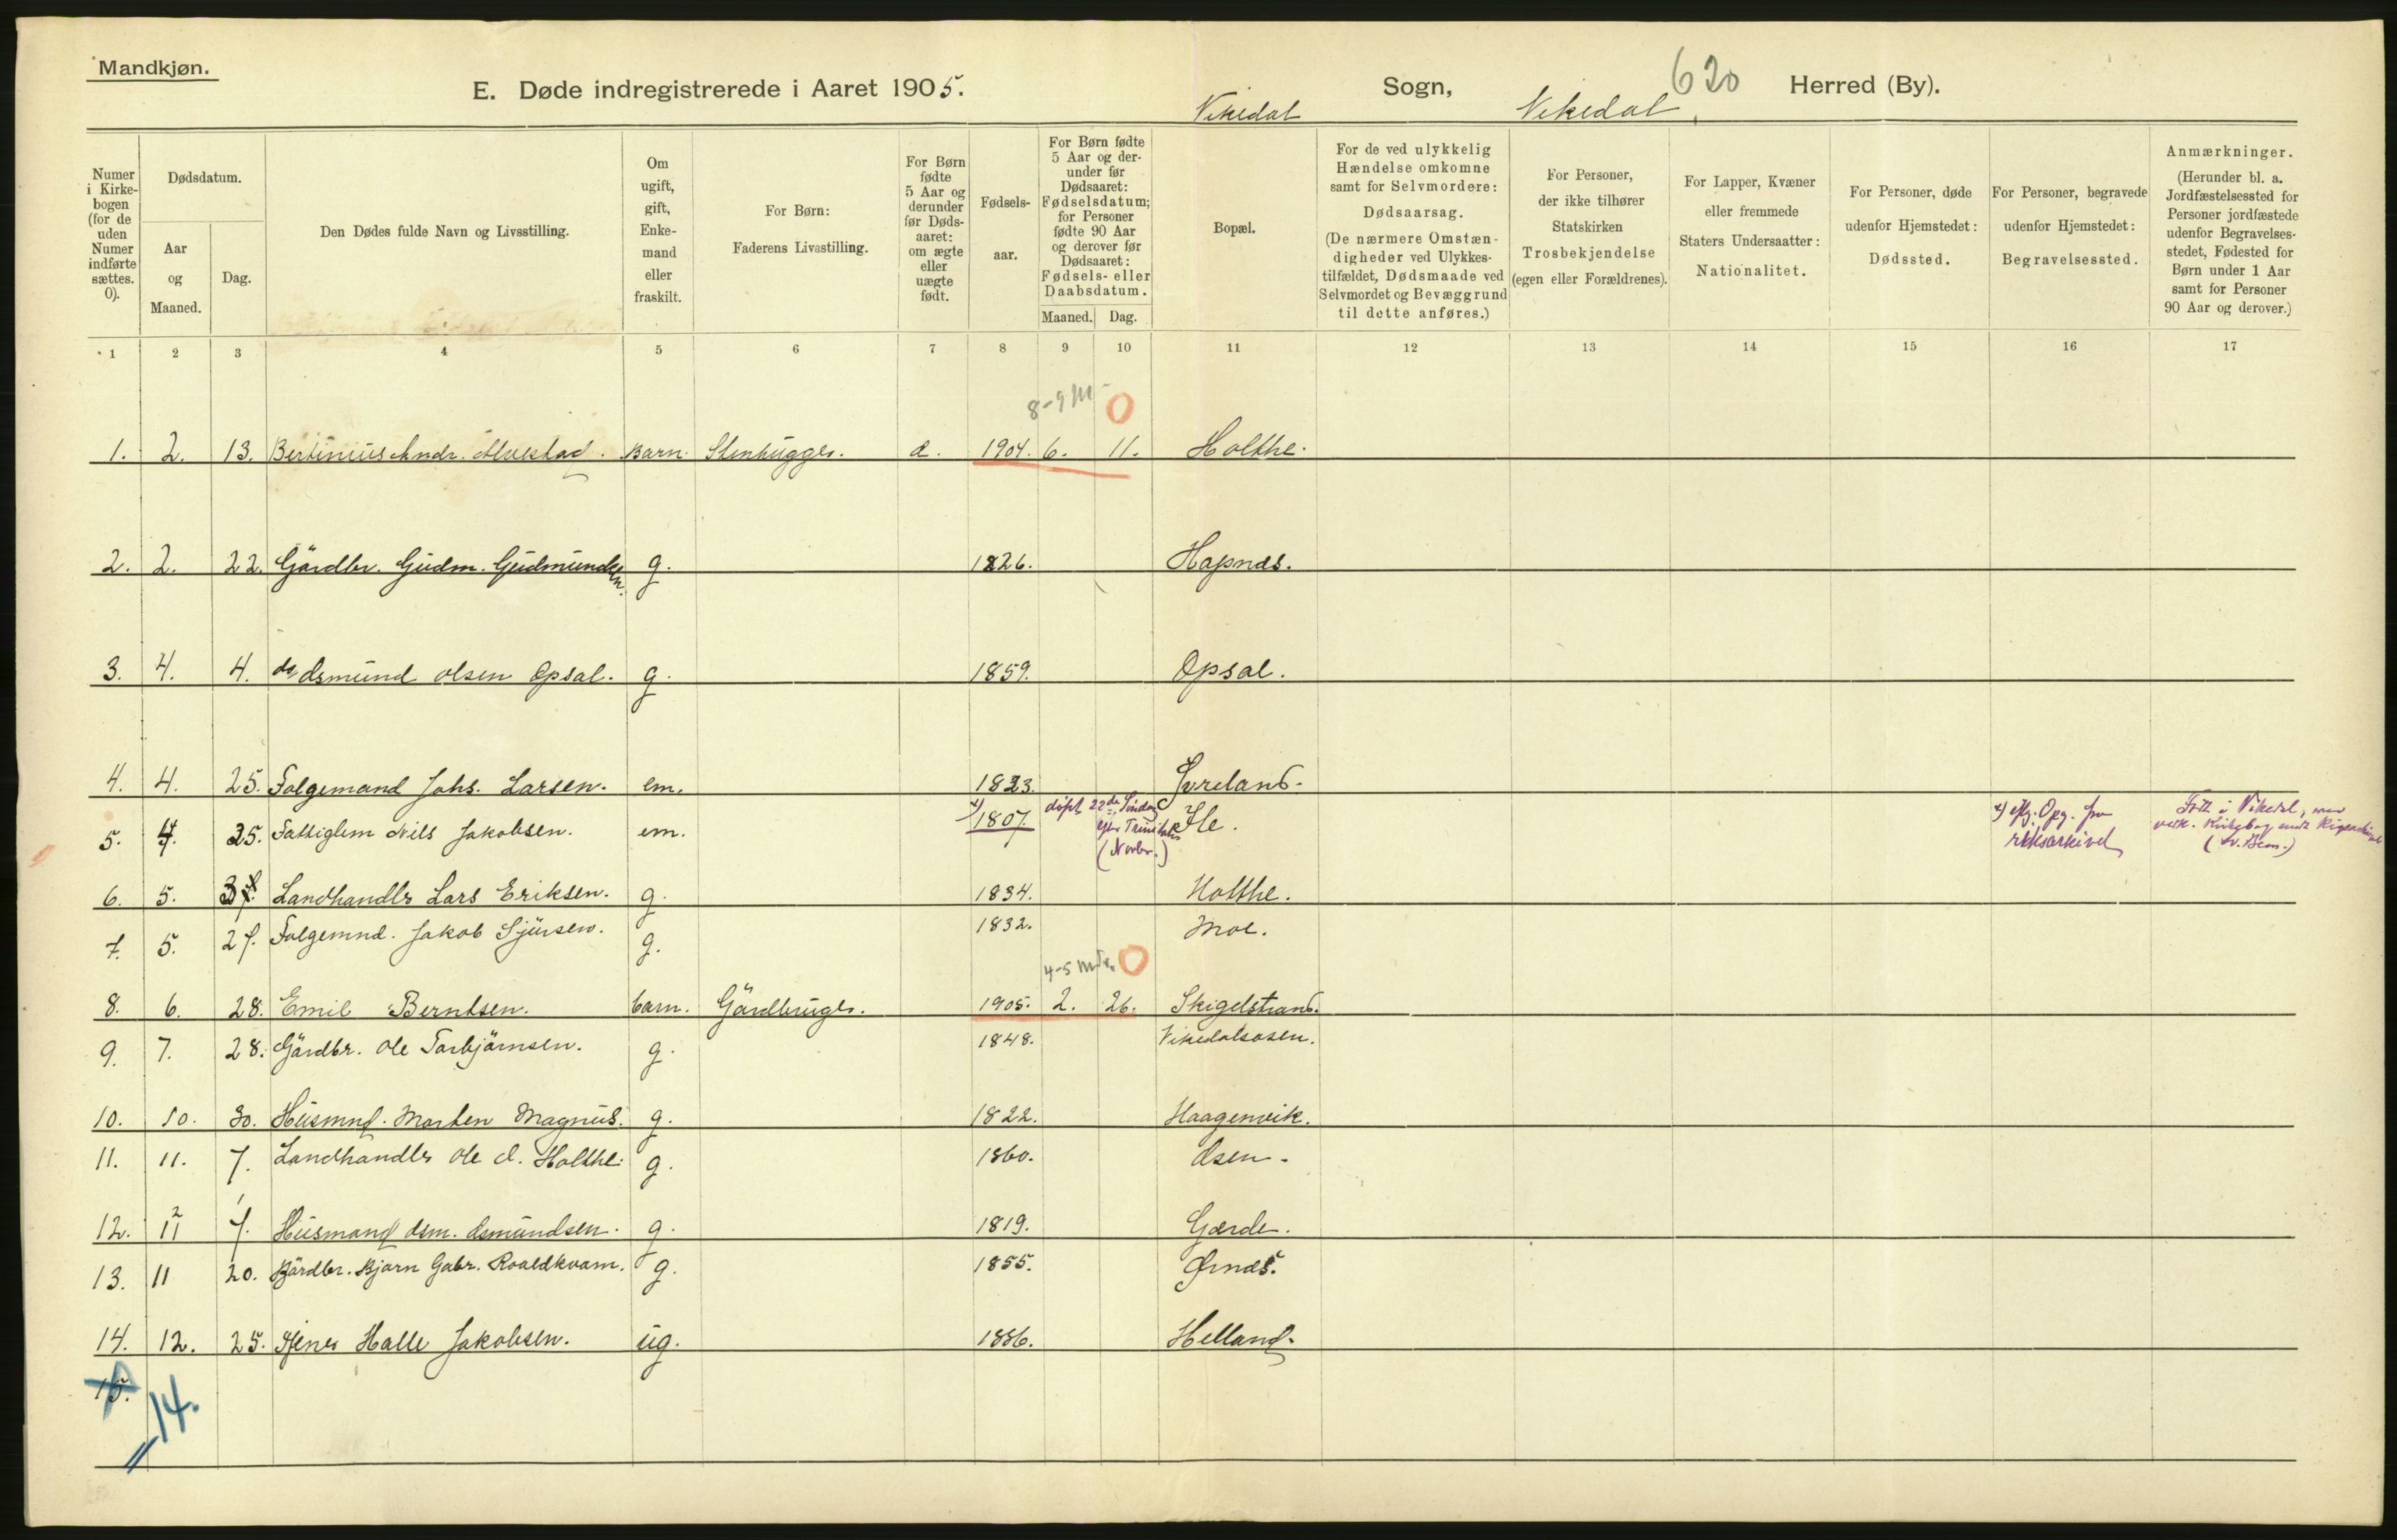 Mandkjøn.
E. Døde indregistrerede i Aaret 1905. Vikedal Sogn, Vikedal 620 Herred (By).
Numer i Kirke-bogen (for de uden Numer indførte sættes. 0).
Dødsdatum.
Aar og Maaned.
Dag.
Den Dødes fulde Navn og Livsstilling.
Om ugift, gift, Enke-mand eller fraskilt.
For Børn: Faderens Livsstilling.
For Børn fødte 5 Aar og derunder før Døds-aaret: om ægte eller uægte født.
Fødsels-aar.
For Børn fødte 5 Aar og der-under før Dødsaaret: Fødselsdatum; for Personer fødte 90 Aar og derover før Dødsaaret: Fødsels- eller Daabsdatum.
Maaned. Dag.
Bopæl.
For de ved ulykkelig Hændelse omkomne samt for Selvmordere: Dødsaarsag. (De nærmere Omstæn-digheder ved Ulykkes-tilfældet, Dødsmaade ved Selvmordet og Bevæggrund til dette anføres.)
For Personer, der ikke tilhører Statskirken Trosbekjendelse (egen eller Forældrenes).
For Lapper, Kvæner eller fremmede Staters Undersaatter: Nationalitet.
For Personer, døde udenfor Hjemstedet: Dødssted.
For Personer, begravede udenfor Hjemstedet: Begravelsessted.
Anmærkninger. (Herunder bl. a. Jordfæstelsessted for Personer jordfæstede udenfor Begravelses-stedet, Fødested for Børn under 1 Aar samt for Personer 90 Aar og derover.)
1 2 3 4 5 6 7 8 9 10 11 12 13 14 15 16 17
8-9 M 0
1. 2. 13. Bertinius Andr. Alvestad. Barn Stenhugger. æ. 1904. 6. 11. Holthe.
2. 2. 22. Gårdbr. Gudm. Gudmundsen. g. 1826. Hapnes.
3. 4. 4. do Asmund Olsen Opsal. g. 1859. Opsal.
4. 4. 25. Folgemand Johs. Larsen. em. 1823. Svreland.
5. 4. 25. Fattiglem Nils Jakobsen. em. x) 1807. døpt 22de Søndag efter Trinitatis (Novbr.) Ile. x) efg. Opg. fra riksarkivet Født i Vikedal,
6. 5. Landhandler Lars Eriksen. g. 1834. Holthe.
7. 5. 27. Folgemnd. Jakob Sjursen. g. 1832. Moe.
4-5 Mdr. 0
8. 6. 28. Emil Berntsen. barn. Gårdbruger. 1905. 2. 26. Skigelstrand.
9. 7. 28. Gårdbr. Ole Torbjørnsen. g. 1848. Vikedalsosen.
10. 10. 30. Husmnd. Morten Magnus. g. 1822. Haagenvik.
11. 11. 7. Landhandler Ole A. Holthe. g. 1860. Osen.
12. 11 7. Husmand Asm. Asmundsen. g. 1819. Gærde.
13. 11 20. Gårdbr. Bjørn Gabr. Roaldkvam. g. 1855. Ørnes.
14. 12. 25. Tjener Halle Jakobsen. ug. 1886. Helland.
15.
14.